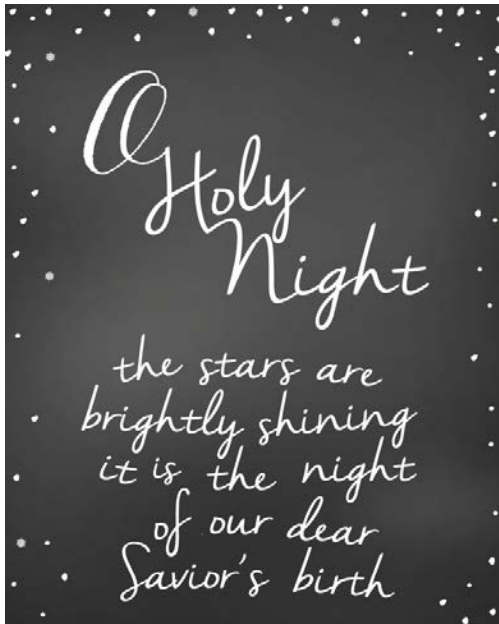 O
Holy
Night
the stars are
brightly shining
it is the night
of our dear
Savior's birth